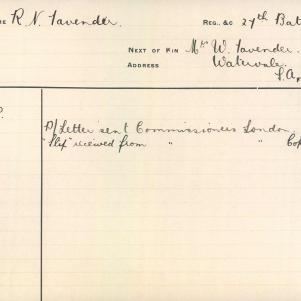 ME R. N. Lavender. Reg., &c 27th Bat
Next of Kin Mr W. Lavender.
Address Watervale.
S. Au
P/ Letter sent Commissioners London,
"Slip" received from " "